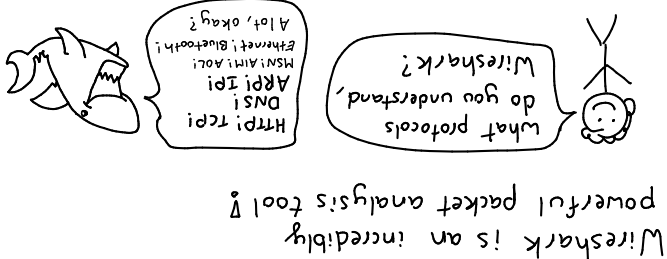 Wireshark is an incredibly
powerful packet analysis tool!
what protocols
do you understand,
Wireshark?
HTTP! TCP!
DNS!
ARP! IP!
MSN! AIM! AOL!
Ethernet! Bluetooth!
A lot, okay?